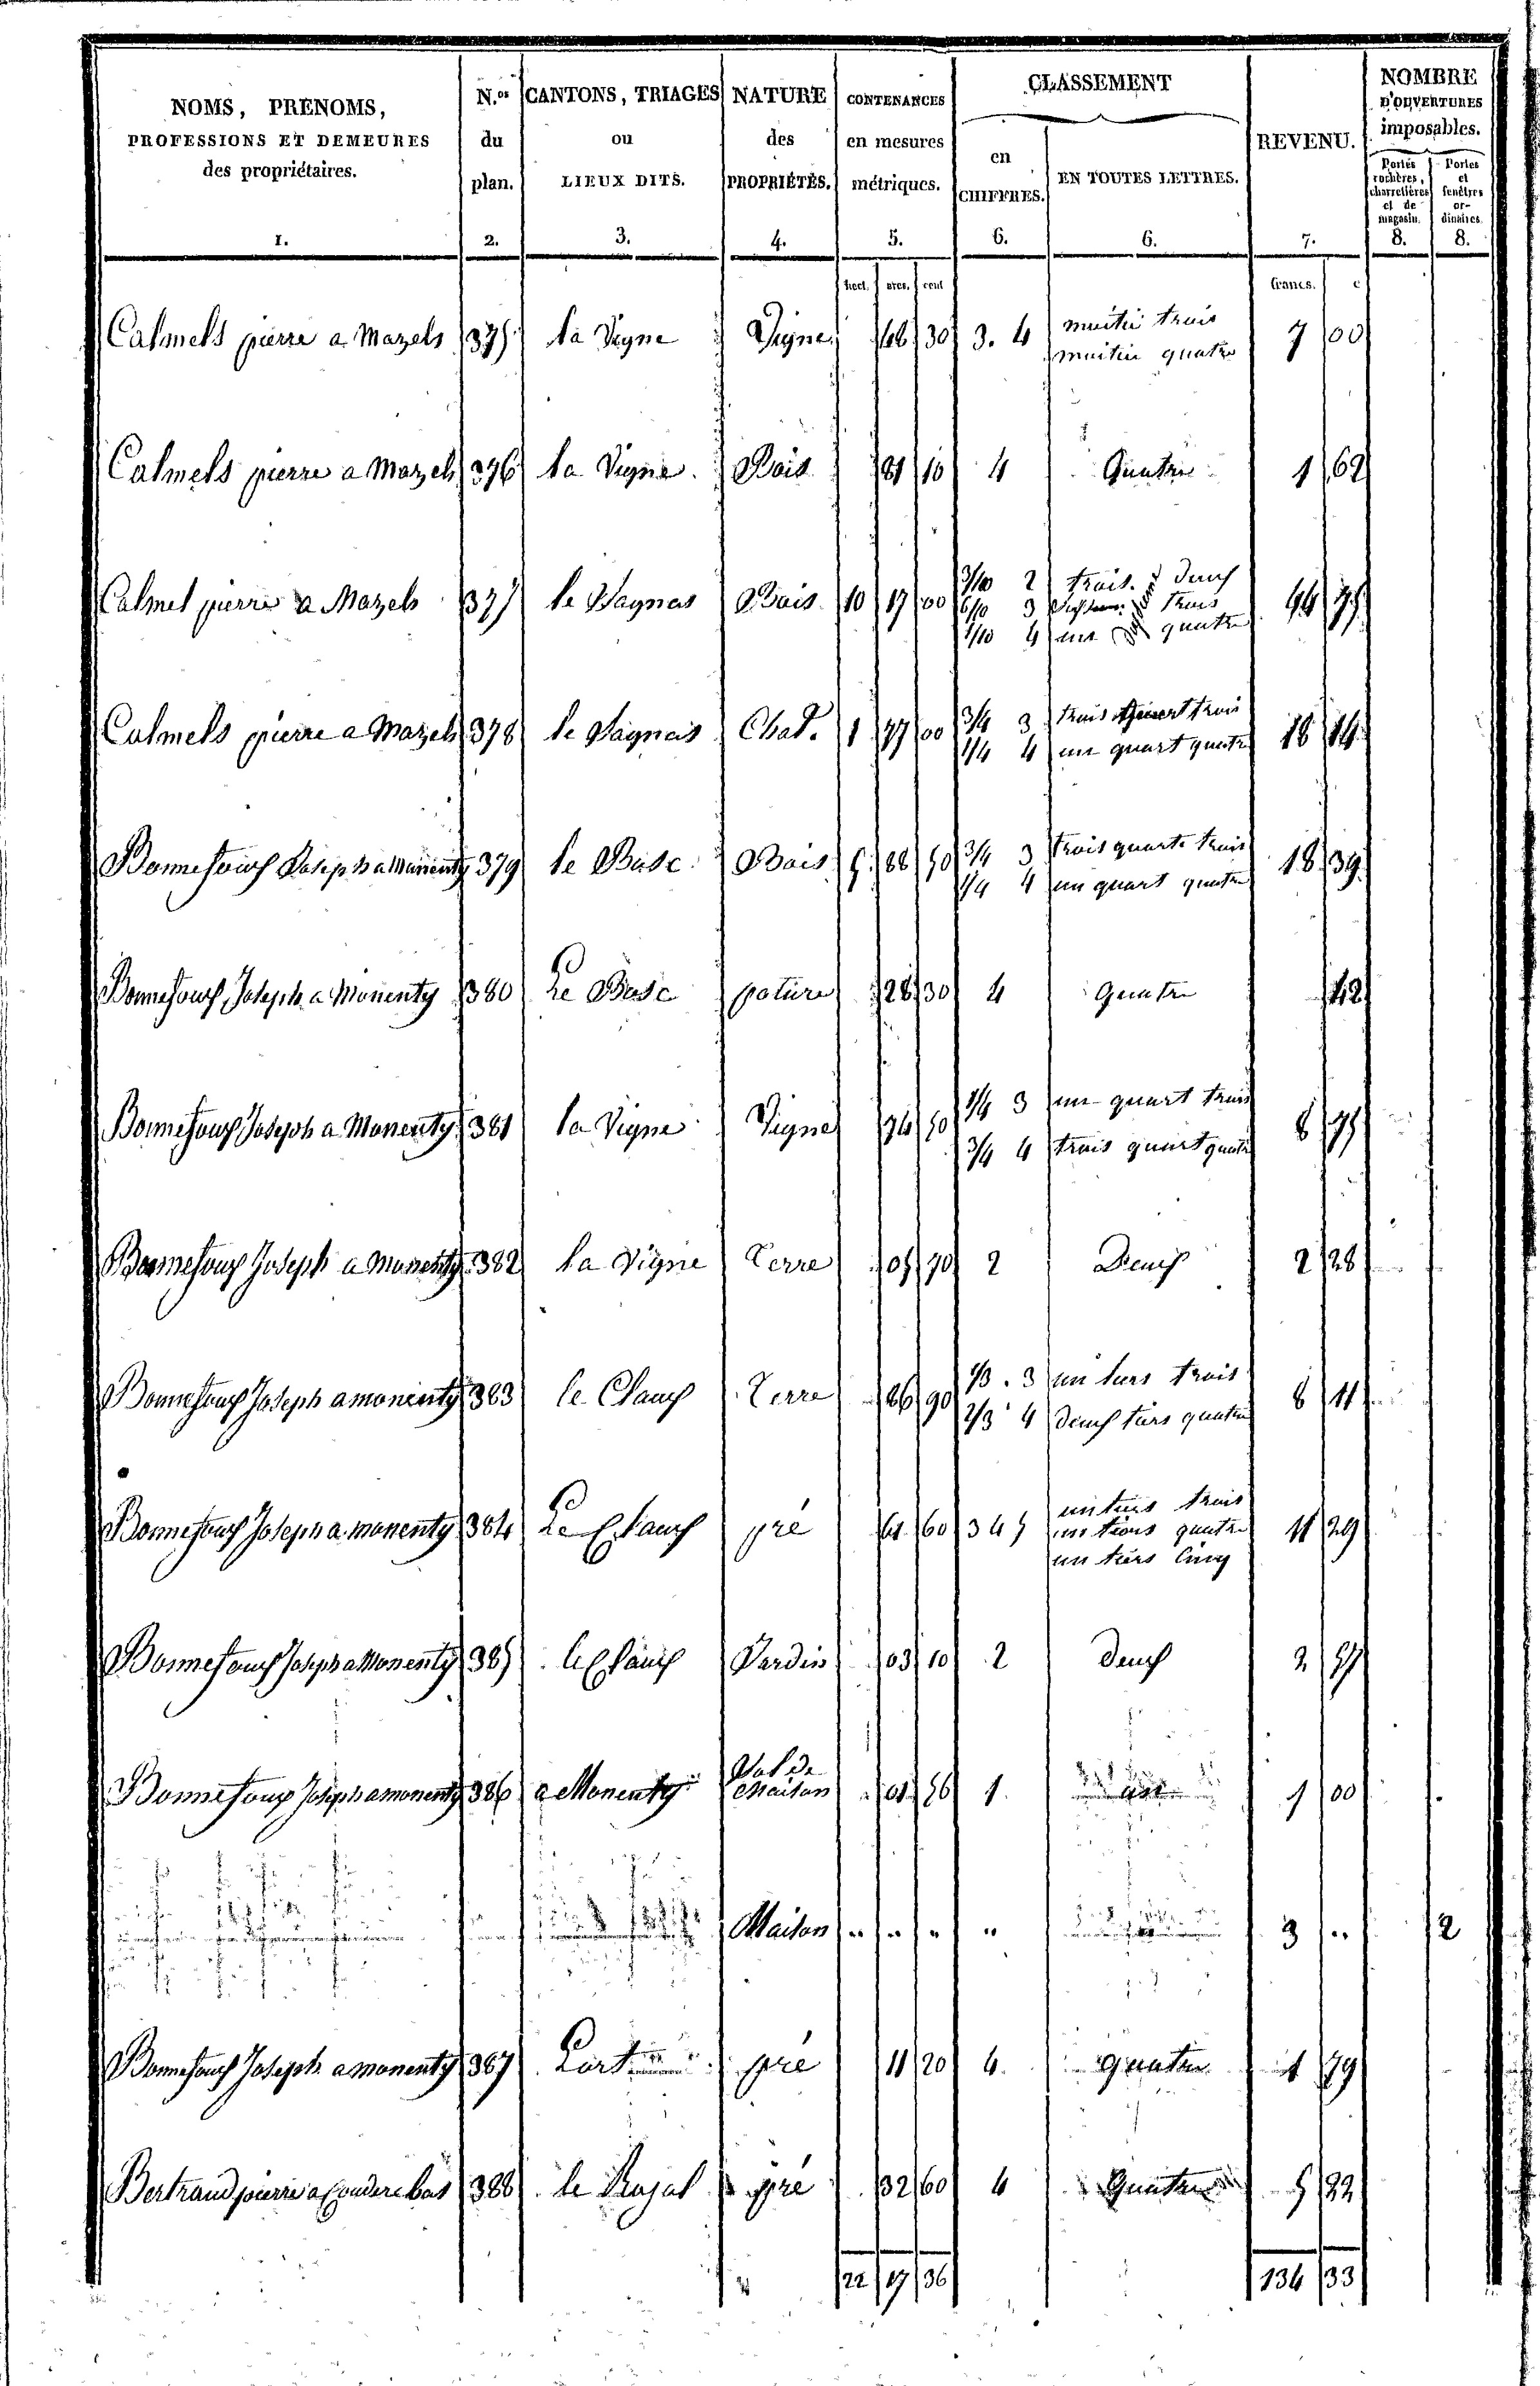 NOMS, PRENOMS, PROFESSIONS ET DEMEURES des propriétaires. 1.
N.os du plan. 2.
CANTONS, TRIAGES ou LIEUX DITS. 3.
NATURE des PROPRIÉTÉS. 4.
CONTENANCES en mesures métriques. 5.
CLASSEMENT
en CHIFFRES. 6.
EN TOUTES LETTRES. 6.
REVENU. 7.
NOMBRE D'OUVERTURES imposables.
Portes cochères, charretières et de magasin. 8.
Portes et fenêtres ordinaires. 8.
hect. ares. cent francs. c
Calmels pierre a Mazels 375 la Vigne Vigne 46 30 3. 4 moitié trois moitié quatre 7 00
Calmels pierre a Mazels 376 la Vigne Bois 81 10 4 Quatre 1 62
Calmel pierre a Mazels 377 le Sagnas Bois 10 17 00 3/10 2 6/10 3 1/10 4 trois deux trois un quatre 44 75
Calmels pierre a Mazels 378 le Sagnas Chat. 1 77 00 3/4 3 1/4 4 trois quart trois un quart quatre 18 14
Bonnefoux Joseph a Monenty 379 le Bosc Bois 5 88 50 3/4 3 1/4 4 trois quarts trois un quart quatre 18 39
Bonnefoux Joseph a Monenty 380 Le Bosc pature 28 30 4 Quatre 42
Bonnefoux Joseph a Monenty 381 la Vigne Vigne 74 50 1/4 3 3/4 4 un quart trois trois quart quatre 8 75
Bonnefoux Joseph a Monenty 382 la Vigne Terre 05 70 2 Deux 2 28
Bonnefoux Joseph a monenty 383 le Claux Terre 86 90 1/3 3 2/3 4 un tiers trois deux tiers quatre 8 11
Bonnefoux Joseph a monenty 384 Le Claux pré 61 60 3 4 5 un tiers trois un tiers quatre un tiers cinq 11 29
Bonnefoux Joseph a Monenty 385 le Claux Jardin 03 10 2 deux 2 57
Bonnefoux Joseph a monenty 386 a Monenty Sol de Maison 01 56 1. 1 00
Maison " " " " 3 " 2
Bonnefoux Joseph a monenty 387 Lort pré 11 20 4. quatre 1 79
Bertrand pierre a bas 388 le pré 32 60 4 Quatre 5 22
22 17 36 134 33